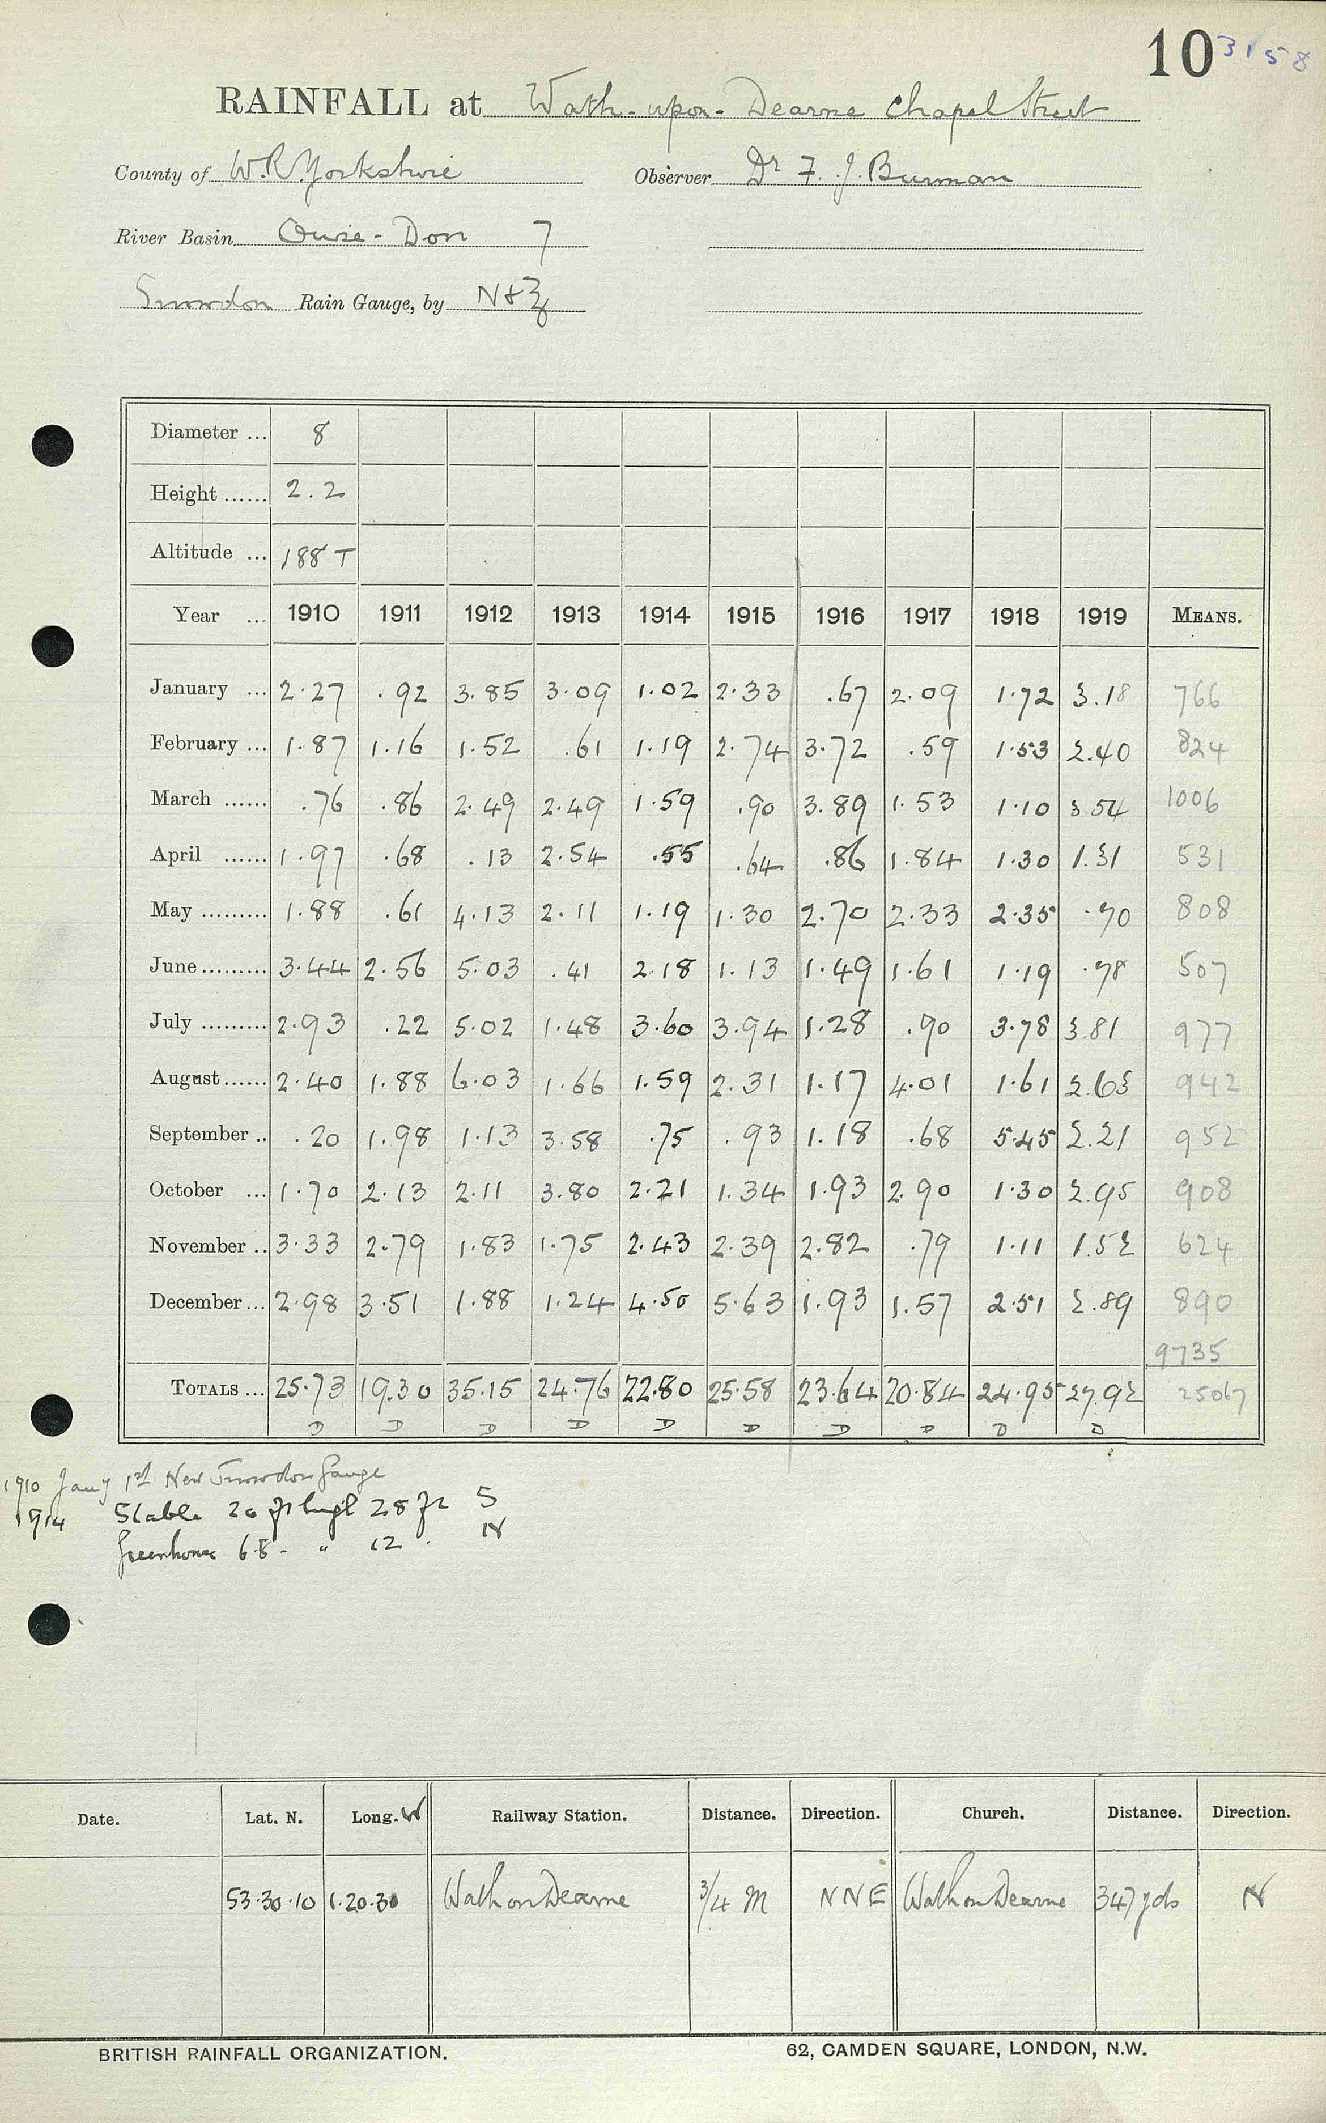 10 3158
RAINFALL at Wath-upon-Dearne Chapel Street
County of W.R. Yorkshire Observer Dr F. J. Burman
River Basin Ouse - Don 7
Snowdon Rain Gauge, by N & Z
Diameter ... 8
Height ...... 2.2
Altitude ... 188 T
Year ... 1910 1911 1912 1913 1914 1915 1916 1917 1918 1919 MEANS.
January ... 2.27 .92 3.85 3.09 1.02 2.33 .67 2.09 1.72 3.18 766
February ... 1.87 1.16 1.52 .61 1.19 2.74 3.72 .59 1.53 2.40 824
March ...... .76 .86 2.49 2.49 1.59 .90 3.89 1.53 1.10 3.54 1006
April ...... 1.97 .68 .13 2.54 .55 .64 .86 1.84 1.30 1.31 531
May ......... 1.88 .61 4.13 2.11 1.19 1.30 2.70 2.33 2.35 .70 808
June ......... 3.44 2.56 5.03 .41 2.18 1.13 1.49 1.61 1.19 .78 507
July ......... 2.93 .22 5.02 1.48 3.60 3.94 1.28 .90 3.78 3.81 977
August ...... 2.40 1.88 6.03 1.66 1.59 2.31 1.17 4.01 1.61 2.63 942
September .. .20 1.98 1.13 3.58 .75 .93 1.18 .68 5.45 2.21 952
October ... 1.70 2.13 2.11 3.80 2.21 1.34 1.93 2.90 1.30 2.95 908
November .. 3.33 2.79 1.83 1.75 2.43 2.39 2.82 .79 1.11 1.52 624
December ... 2.98 3.51 1.88 1.24 4.50 5.63 1.93 1.57 2.51 2.89 890
9735
TOTALS ... 25.73 19.30 35.15 24.76 22.80 25.58 23.64 20.84 24.95 27.92 25067
D D D D D D D D D D
1910 Jany 1st New Snowdon Gauge
1914 Stable 20 ft high 28 ft S
Greenhouse 6.8 - " 12 . N
Date. Lat. N. Long. W Railway Station. Distance. Direction. Church. Distance. Direction.
53.30.10 1.20.30 Wath on Dearne 3/4 M NNE Wath on Dearne 347 yds N
BRITISH RAINFALL ORGANIZATION. 62, CAMDEN SQUARE, LONDON, N.W.